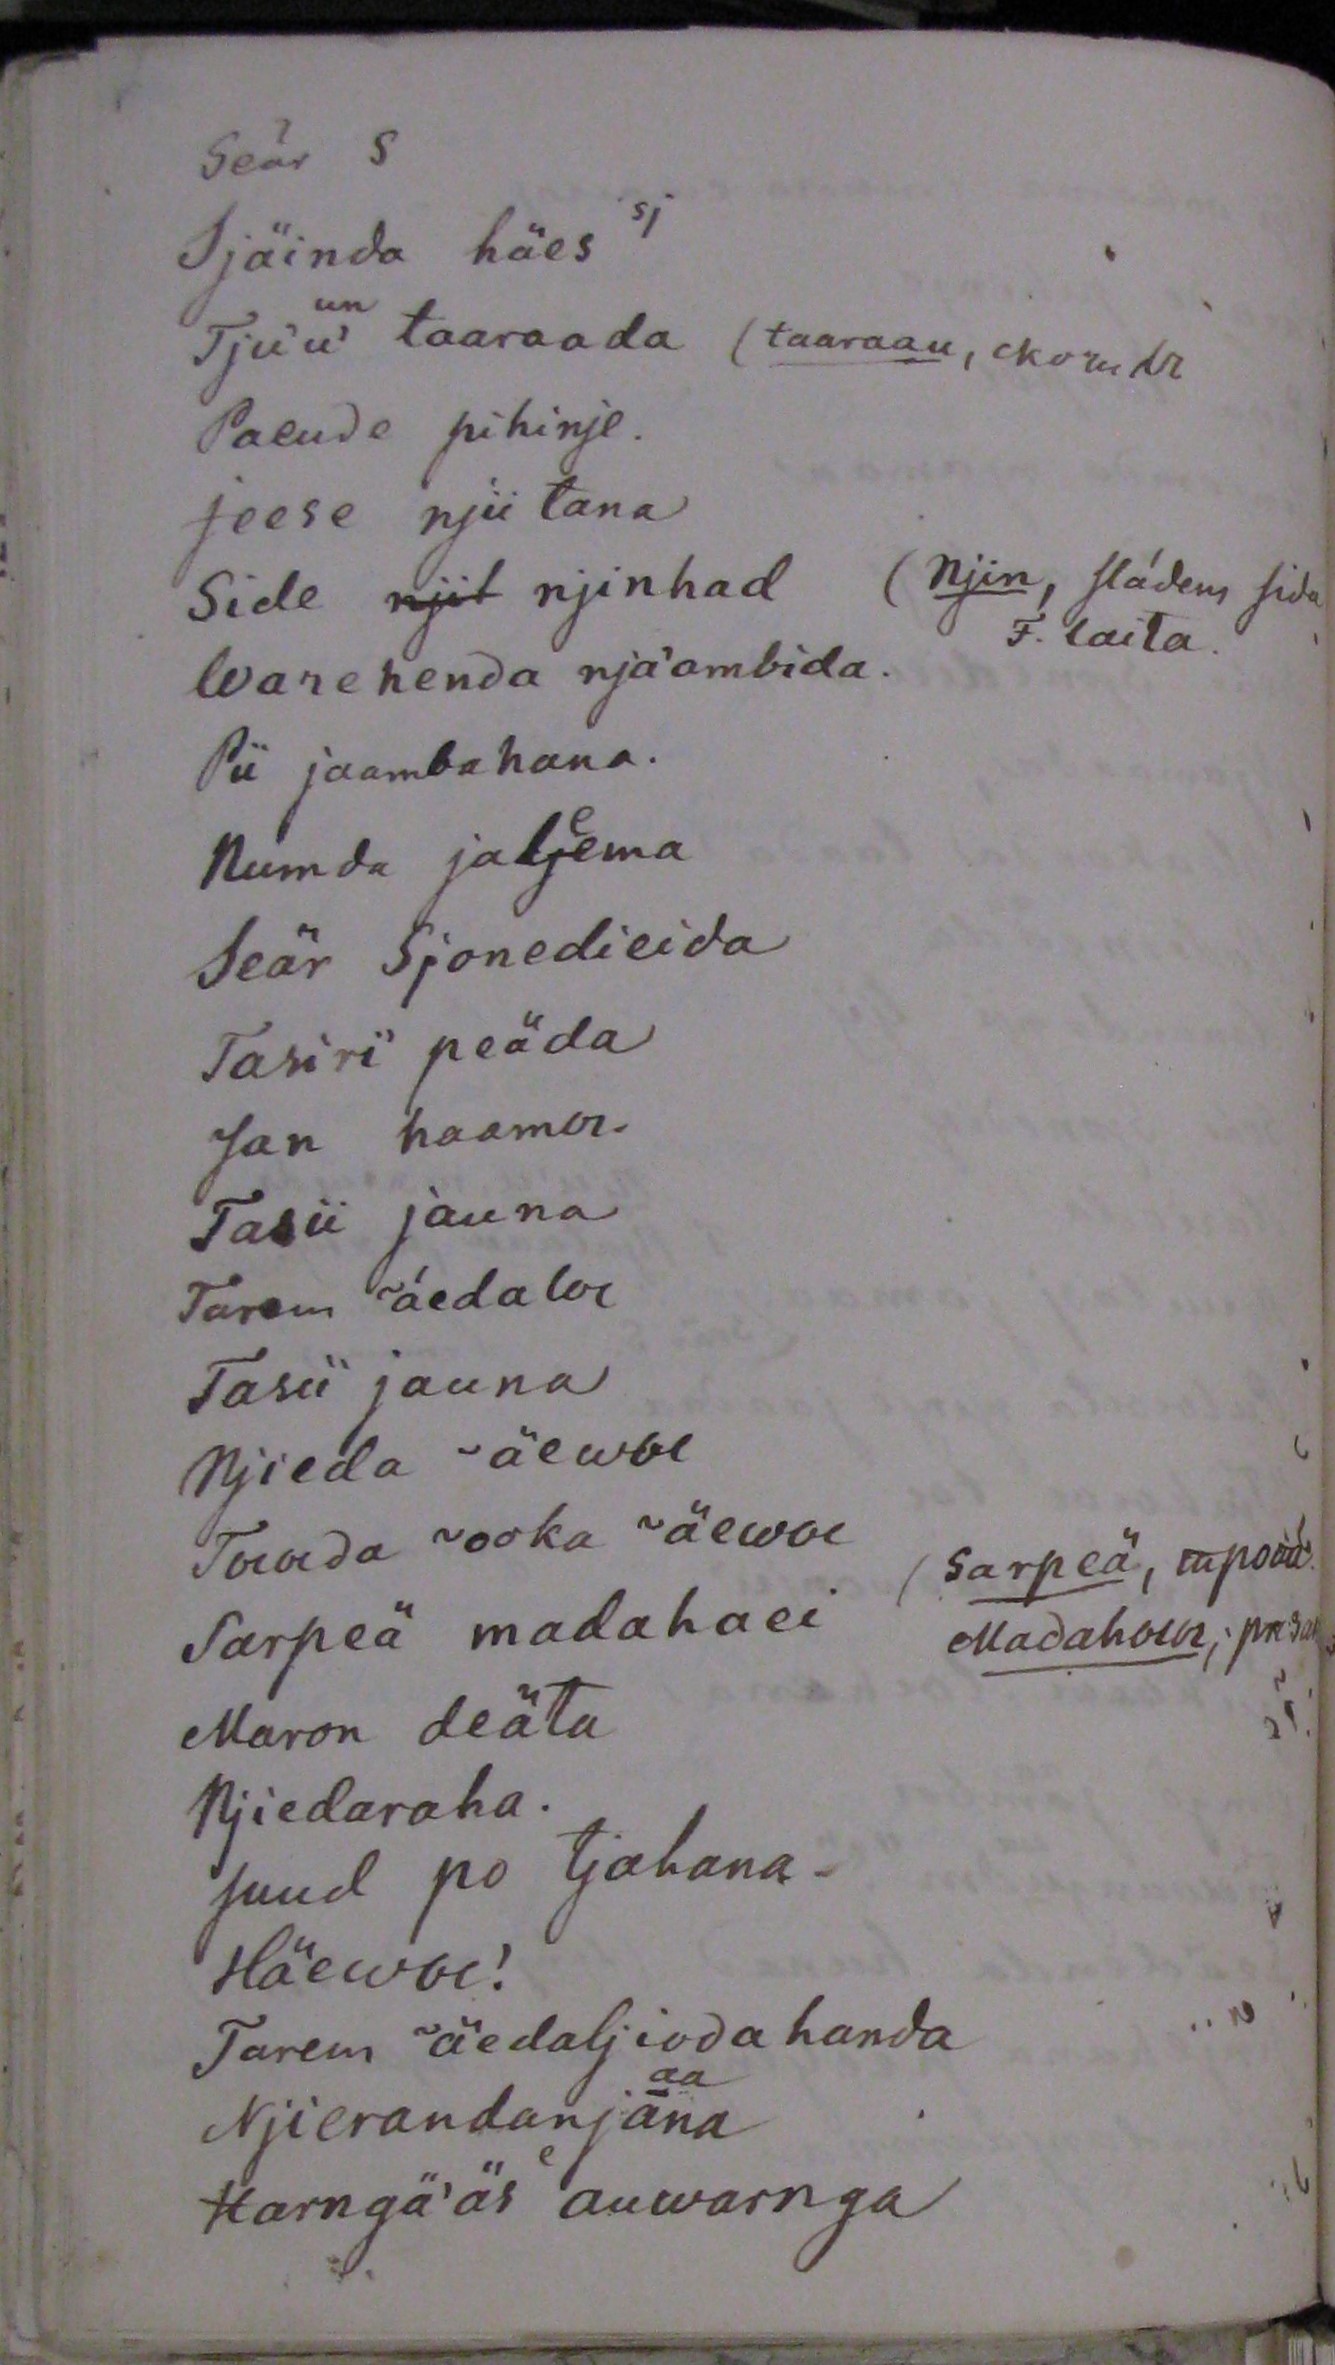 Seär S
Sjäinda häes sj
Tju'u' un taaraada (taaraau,
Paeude pihinje.
jeese njii tana
Side njit njinhad (Njin, slädens sida
F. laita.
Warehenda njä'ambida.
Pii jaambahana.
Numda jaljema e
Seär Sjonedieida
Tasirï peäda
Jan haamoe.
Tasii jauna
Tarem ~äedaloe
Tasii jauna
Njieda ~äewoe
Toeoeda ~ooka ~äewoe
Sarpeä madahaei (Sarpeä,
Madahoeoe,
Maron deäta
Njiedaraha.
juud po tjahana
Häewoe!
Tarem ~äedaljiodahanda
Njierandanjana aa
Harngä'äs e auwarnga